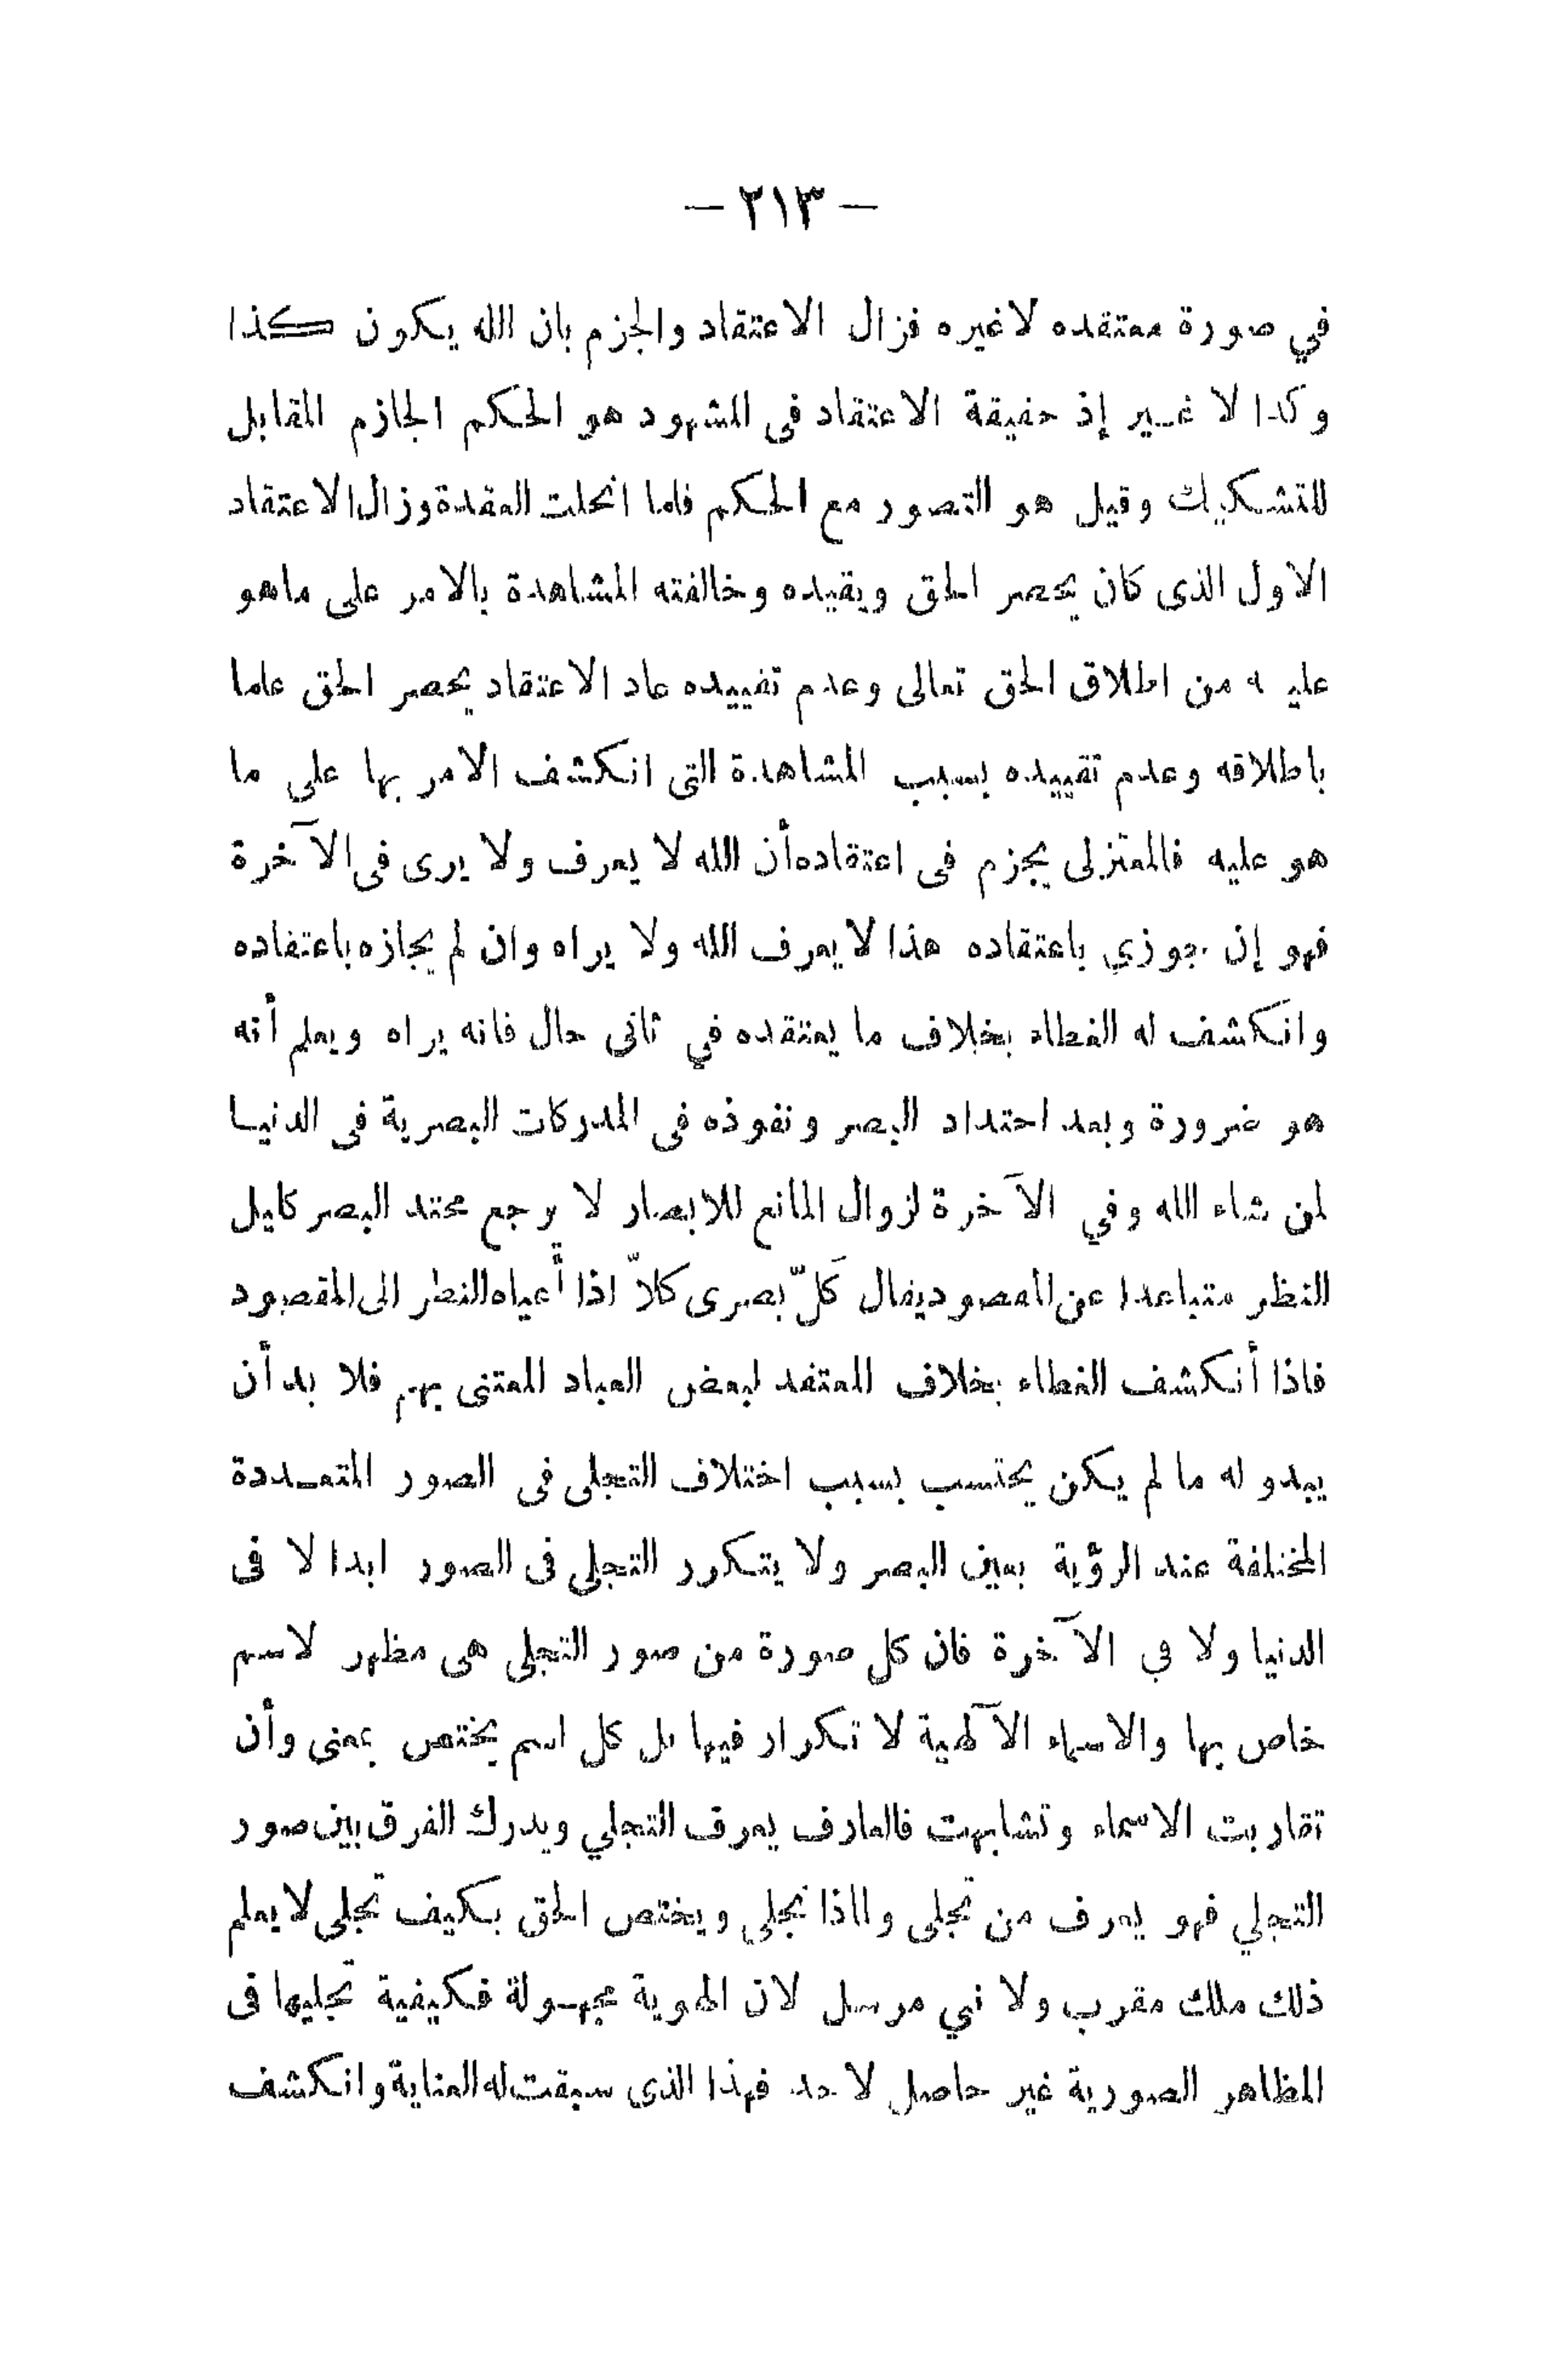 — ٢١٣ —
في صورة معتقده لاغيره فزال الاعتقاد والجزم بان الله يكون كذا
وكذا لا غير إذ حقيقة الاعتقاد في المشهود هو الحكم الجازم المقابل
للتشكيك وقيل هو التصور مع الحكم فلما انحلت العقدة وزال الاعتقاد
الاول الذى كان يحصر الحق ويقيده وخالفته المشاهدة بالامر على ماهو
عليه من اطلاق الحق تعالى وعدم تقييده عاد الاعتقاد يحصر الحق علما
باطلاقه وعدم تقييده بسبب المشاهدة التى انكشف الامر بها على ما
هو عليه فالمعتزلى يجزم فى اعتقاده أن الله لا يعرف ولا يرى فى الآخرة
فهو إن جوزي باعتقاده هذا لا يعرف الله ولا يراه وان لم يجازه باعتقاده
وانكشف له الغطاء بخلاف ما يعتقده في ثانى حال فانه يراه ويعلم أنه
هو ضرورة وبعد احتداد البصر ونفوذه فى المدركات البصرية فى الدنيا
لمن شاء الله وفي الآخرة لزوال المانع للابصار لا يرجع محتد البصر كليل
النظر متباعدا عن المقصود يقال كَلّ بصرى كلاّ اذا أعياه النظر الى المقصود
فاذا أنكشف الغطاء بخلاف المعتقد لبعض العباد المعتنى بهم فلا بد أن
يبدو له ما لم يكن يحتسب بسبب اختلاف التجلى فى الصور المتعددة
المختلفة عند الرؤية بعين البصر ولا يتكرر التجلى فى الصور ابدا لا فى
الدنيا ولا في الآخرة فان كل صورة من صور التجلى هى مظهر لاسم
خاص بها والاسماء الآلهية لا تكرار فيها بل كل اسم يختص بمعنى وأن
تقاربت الاسماء وتشابهت فالعارف يعرف التجلي ويدرك الفرق بين صور
التجلي فهو يعرف من تجلى ولماذا تجلي ويختص الحق بكيف تجلى لا يعلم
ذلك ملك مقرب ولا نبي مرسل لان الهوية مجهولة فكيفية تجليها فى
المظاهر الصورية غير حاصل لاحد فهذا الذى سبقت له العناية وانكشف